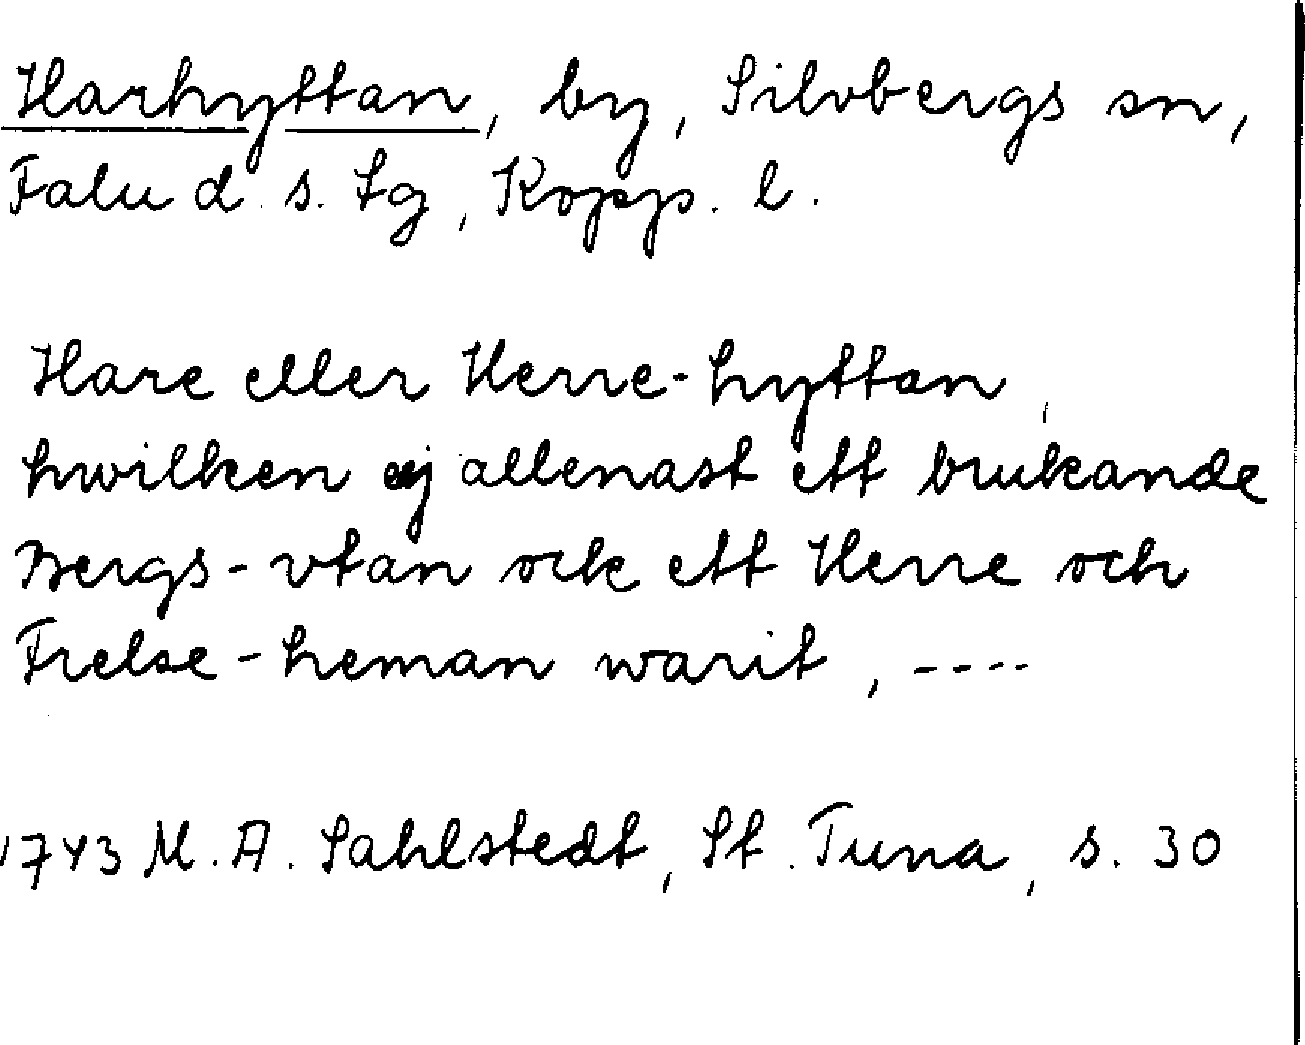 Harhyttan, by, Silvbergs sn,
Falu d. s. tg, Kopp. l.
Hare eller Herre-hyttan,
hwilken ej allenast ett brukande
Bergs-vtan ock ett Herre och
Frelse-heman warit, ----
1743 M. A. Sahlstedt, St. Tuna, s. 30